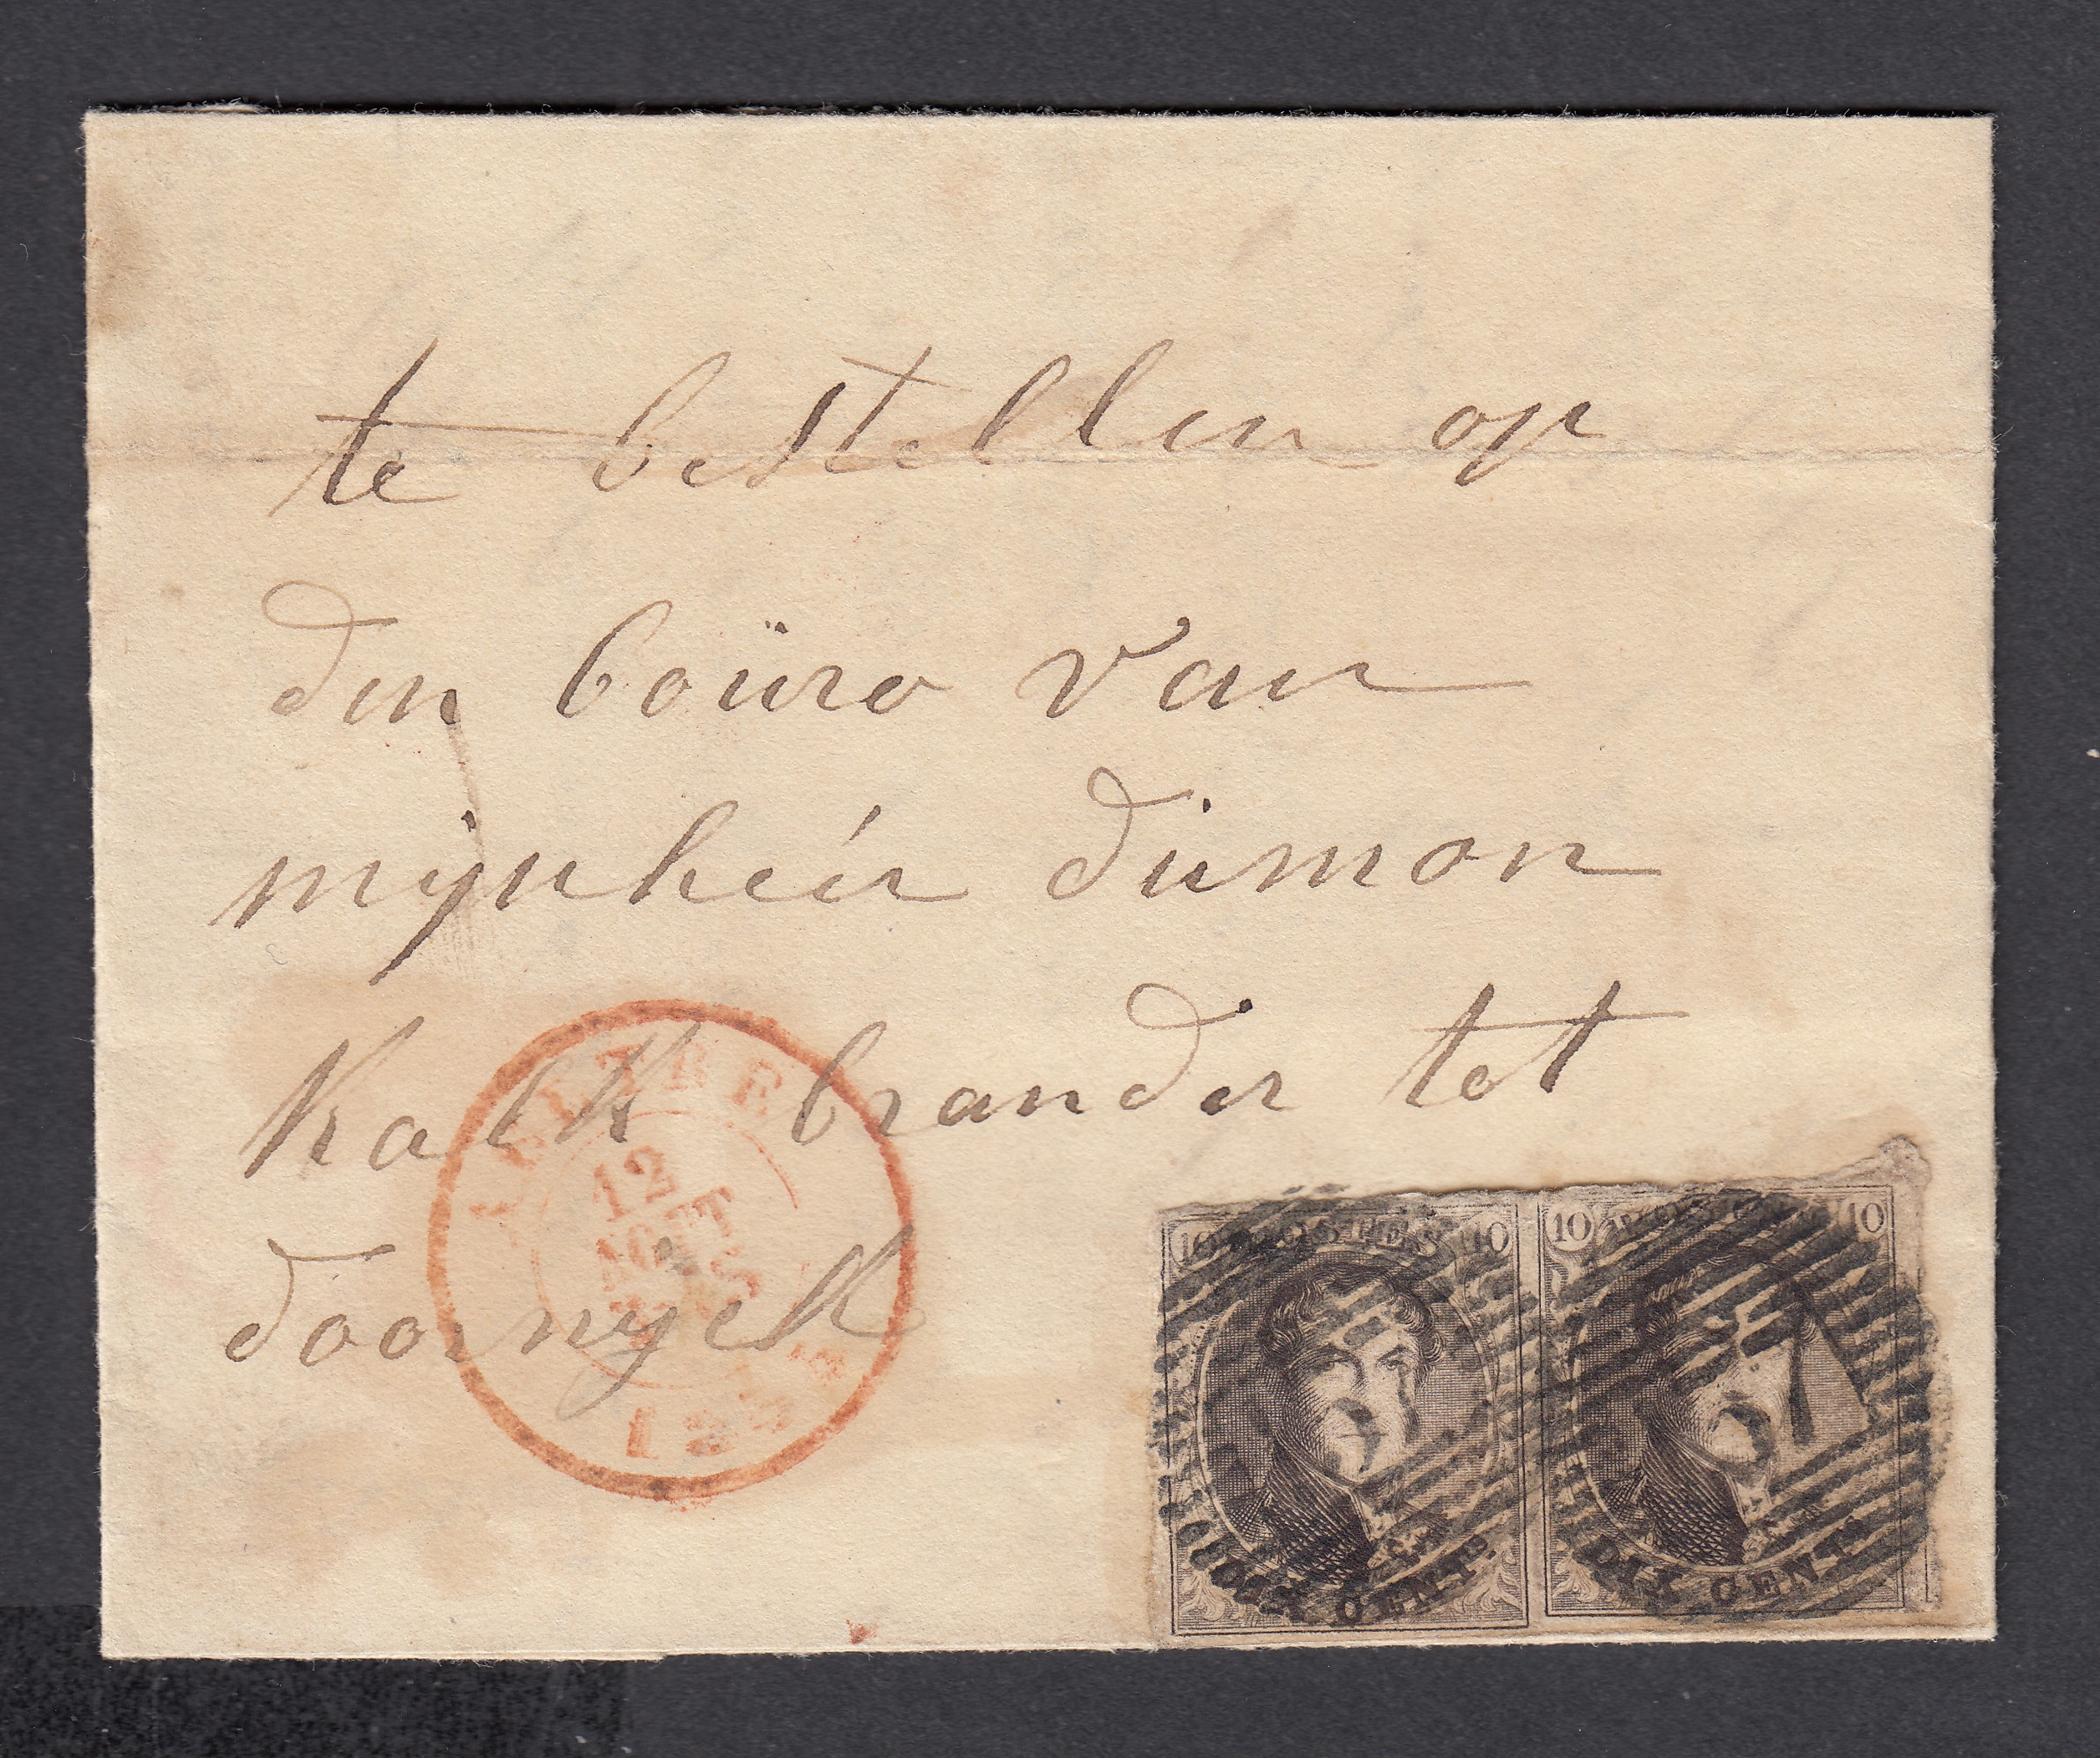 te bestellen op
den boüro van
mijnheér dúmon
Kalk brander tot
doornyck
12
AOUT
10 POSTES 10
DIX CENTS
10 POSTES 10
DIX CENTS